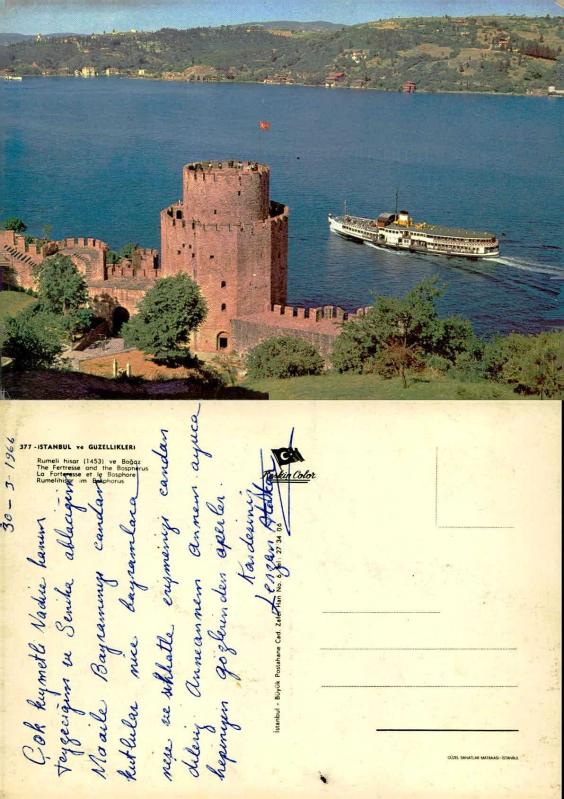 377 - İSTANBUL ve GÜZELLİKLERİ
Rumeli hisar (1453) ve Boğaz
The Fertresse and the Bosphorus
La Forteresse et le Bosphore
Rumelihisar im Bosphorus
30-3-1966
Çok kıymetli Nadire hanım
teyzeciğim ve Seniha ablacığım
Maaile Bayramınızı candan
kutlular nice bayramlara
neşe ve sıhhatle erişmenizi candan
dileriz Anneannem Annem ayrıca
hepinizin gözlerinden öperler.
Kardeşiniz
Keskin Color
İstanbul - Büyük Postahane Cad. Zafer Han No. 6 Tel: 27 34 06
GÜZEL SANATLAR MATBAASI - İSTANBUL